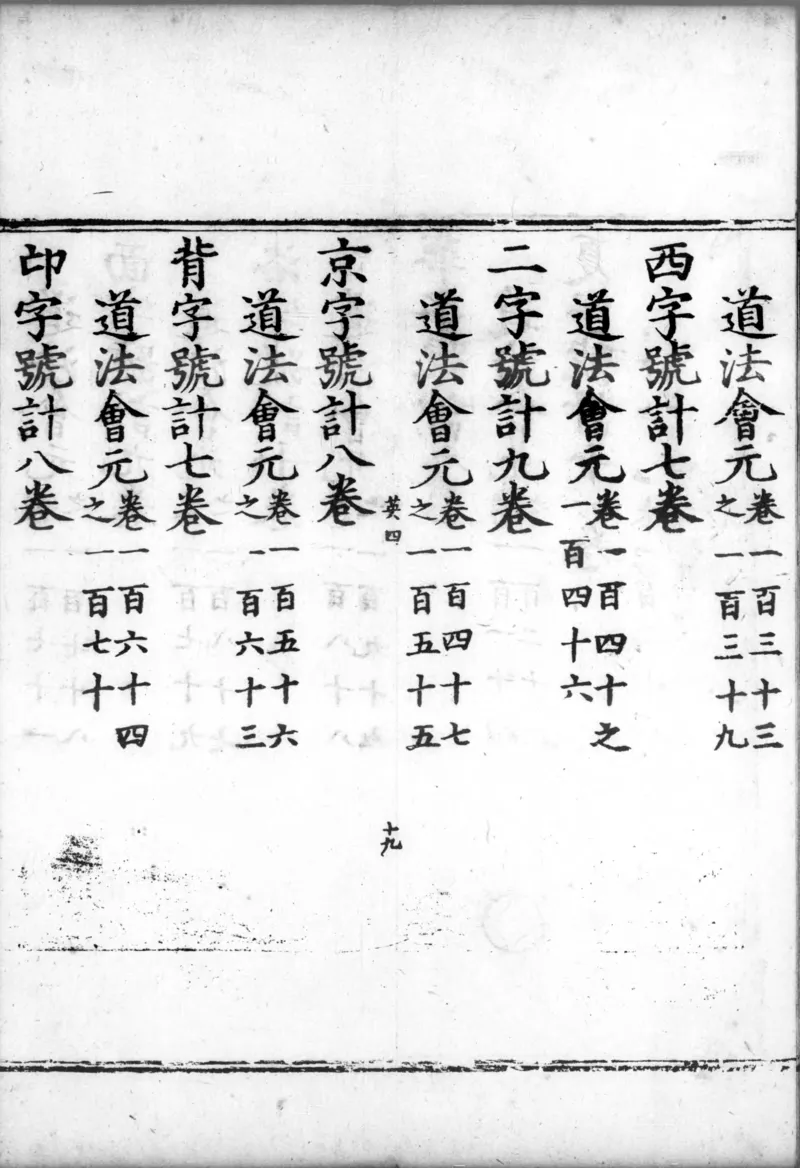 道法會元卷一百三十三
之一百三十九
西字號計七卷
道法會元卷一百四十之
一百四十六
二字號計九卷
道法會元卷一百四十七
之一百五十五
英四
十九
京字號計八卷
道法會元卷一百五十六
之一百六十三
背字號計七卷
道法會元卷一百六十四
之一百七十
邙字號計八卷